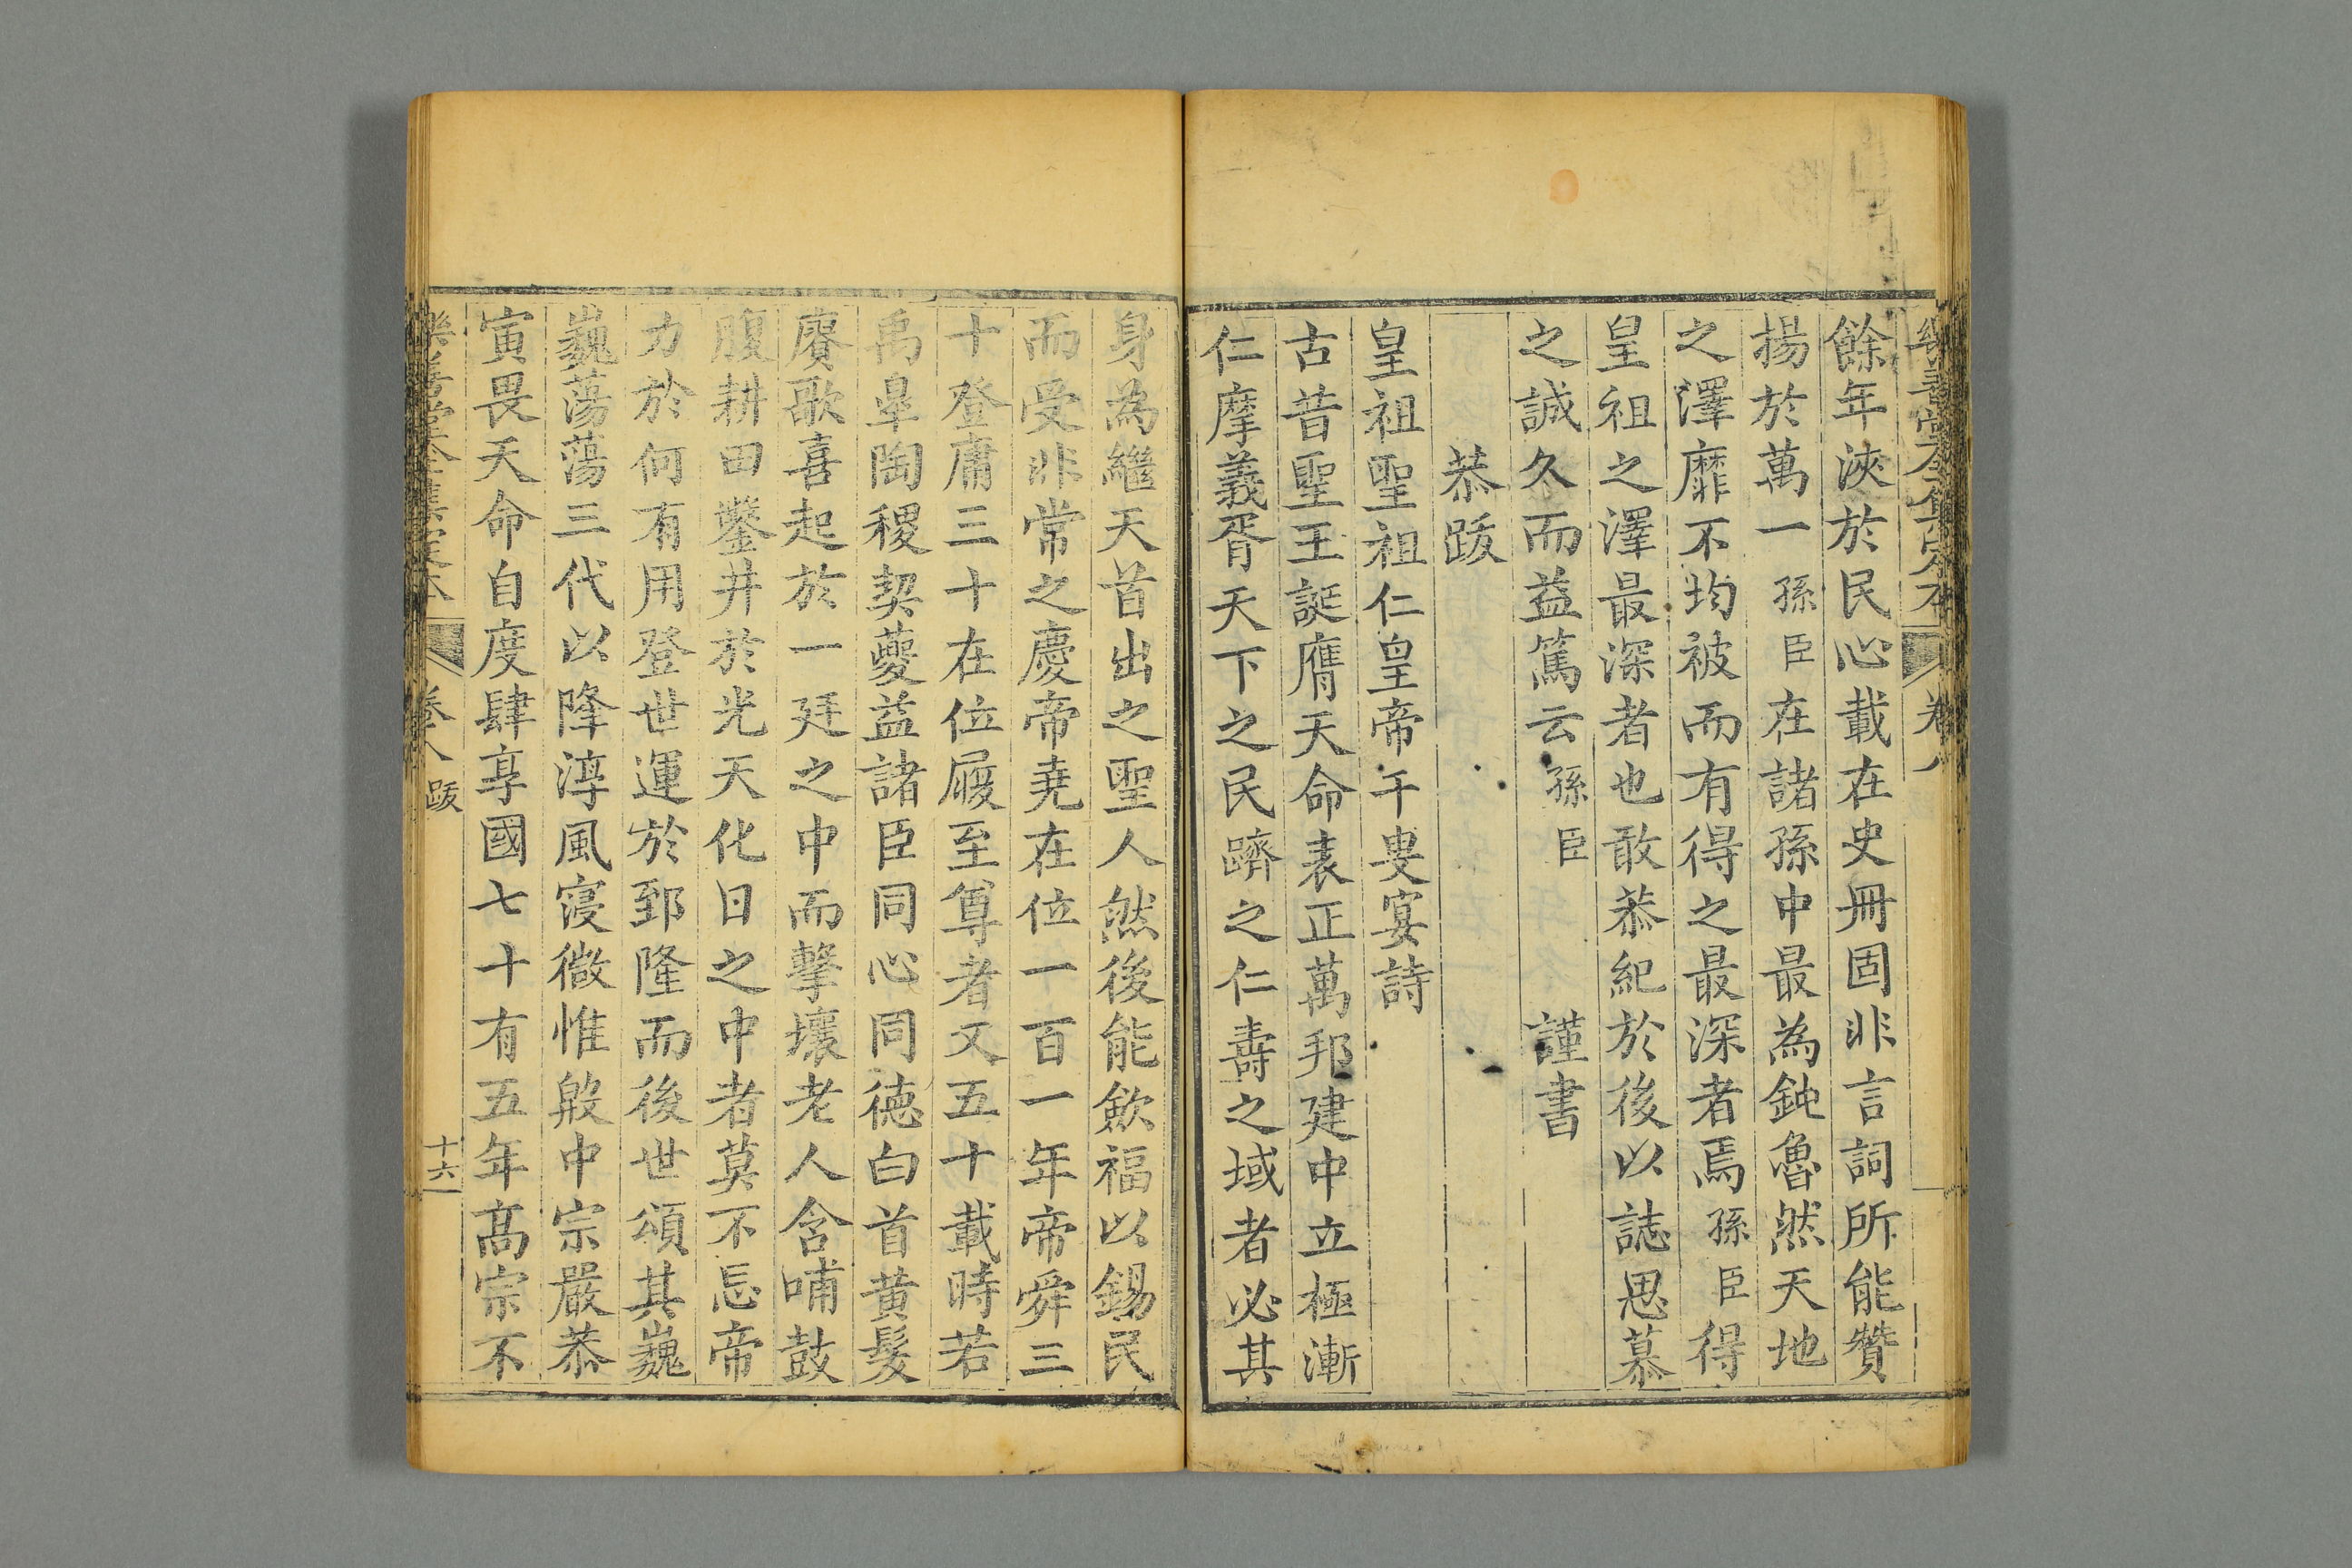 樂善堂全集定本 卷八
餘年浹於民心載在史冊固非言詞所能贊
揚於萬一孫臣在諸孫中最為鈍魯然天地
之澤靡不均被而有得之最深者焉孫臣得
皇祖之澤最深者也敢恭紀於後以誌思慕
之誠久而益篤云孫臣 謹書
恭跋
皇祖聖祖仁皇帝千叟宴詩
古昔聖王誕膺天命表正萬邦建中立極漸
仁摩義胥天下之民躋之仁壽之域者必其
身為繼天首出之聖人然後能歛福以錫民
而受非常之慶帝堯在位一百一年帝舜三
十登庸三十在位屐至尊者又五十載時若
禹皐陶稷契夔益諸臣同心同德白首黃髮
賡歌喜起於一廷之中而擊壤老人含哺鼓
腹耕田鑿井於光天化日之中者莫不忘帝
力於何有用登世運於郅隆而後世頌其巍
巍蕩蕩三代以降淳風寖微惟殷中宗嚴恭
寅畏天命自度肆享國七十有五年高宗不
樂善堂全集定本 卷八 跋 十六